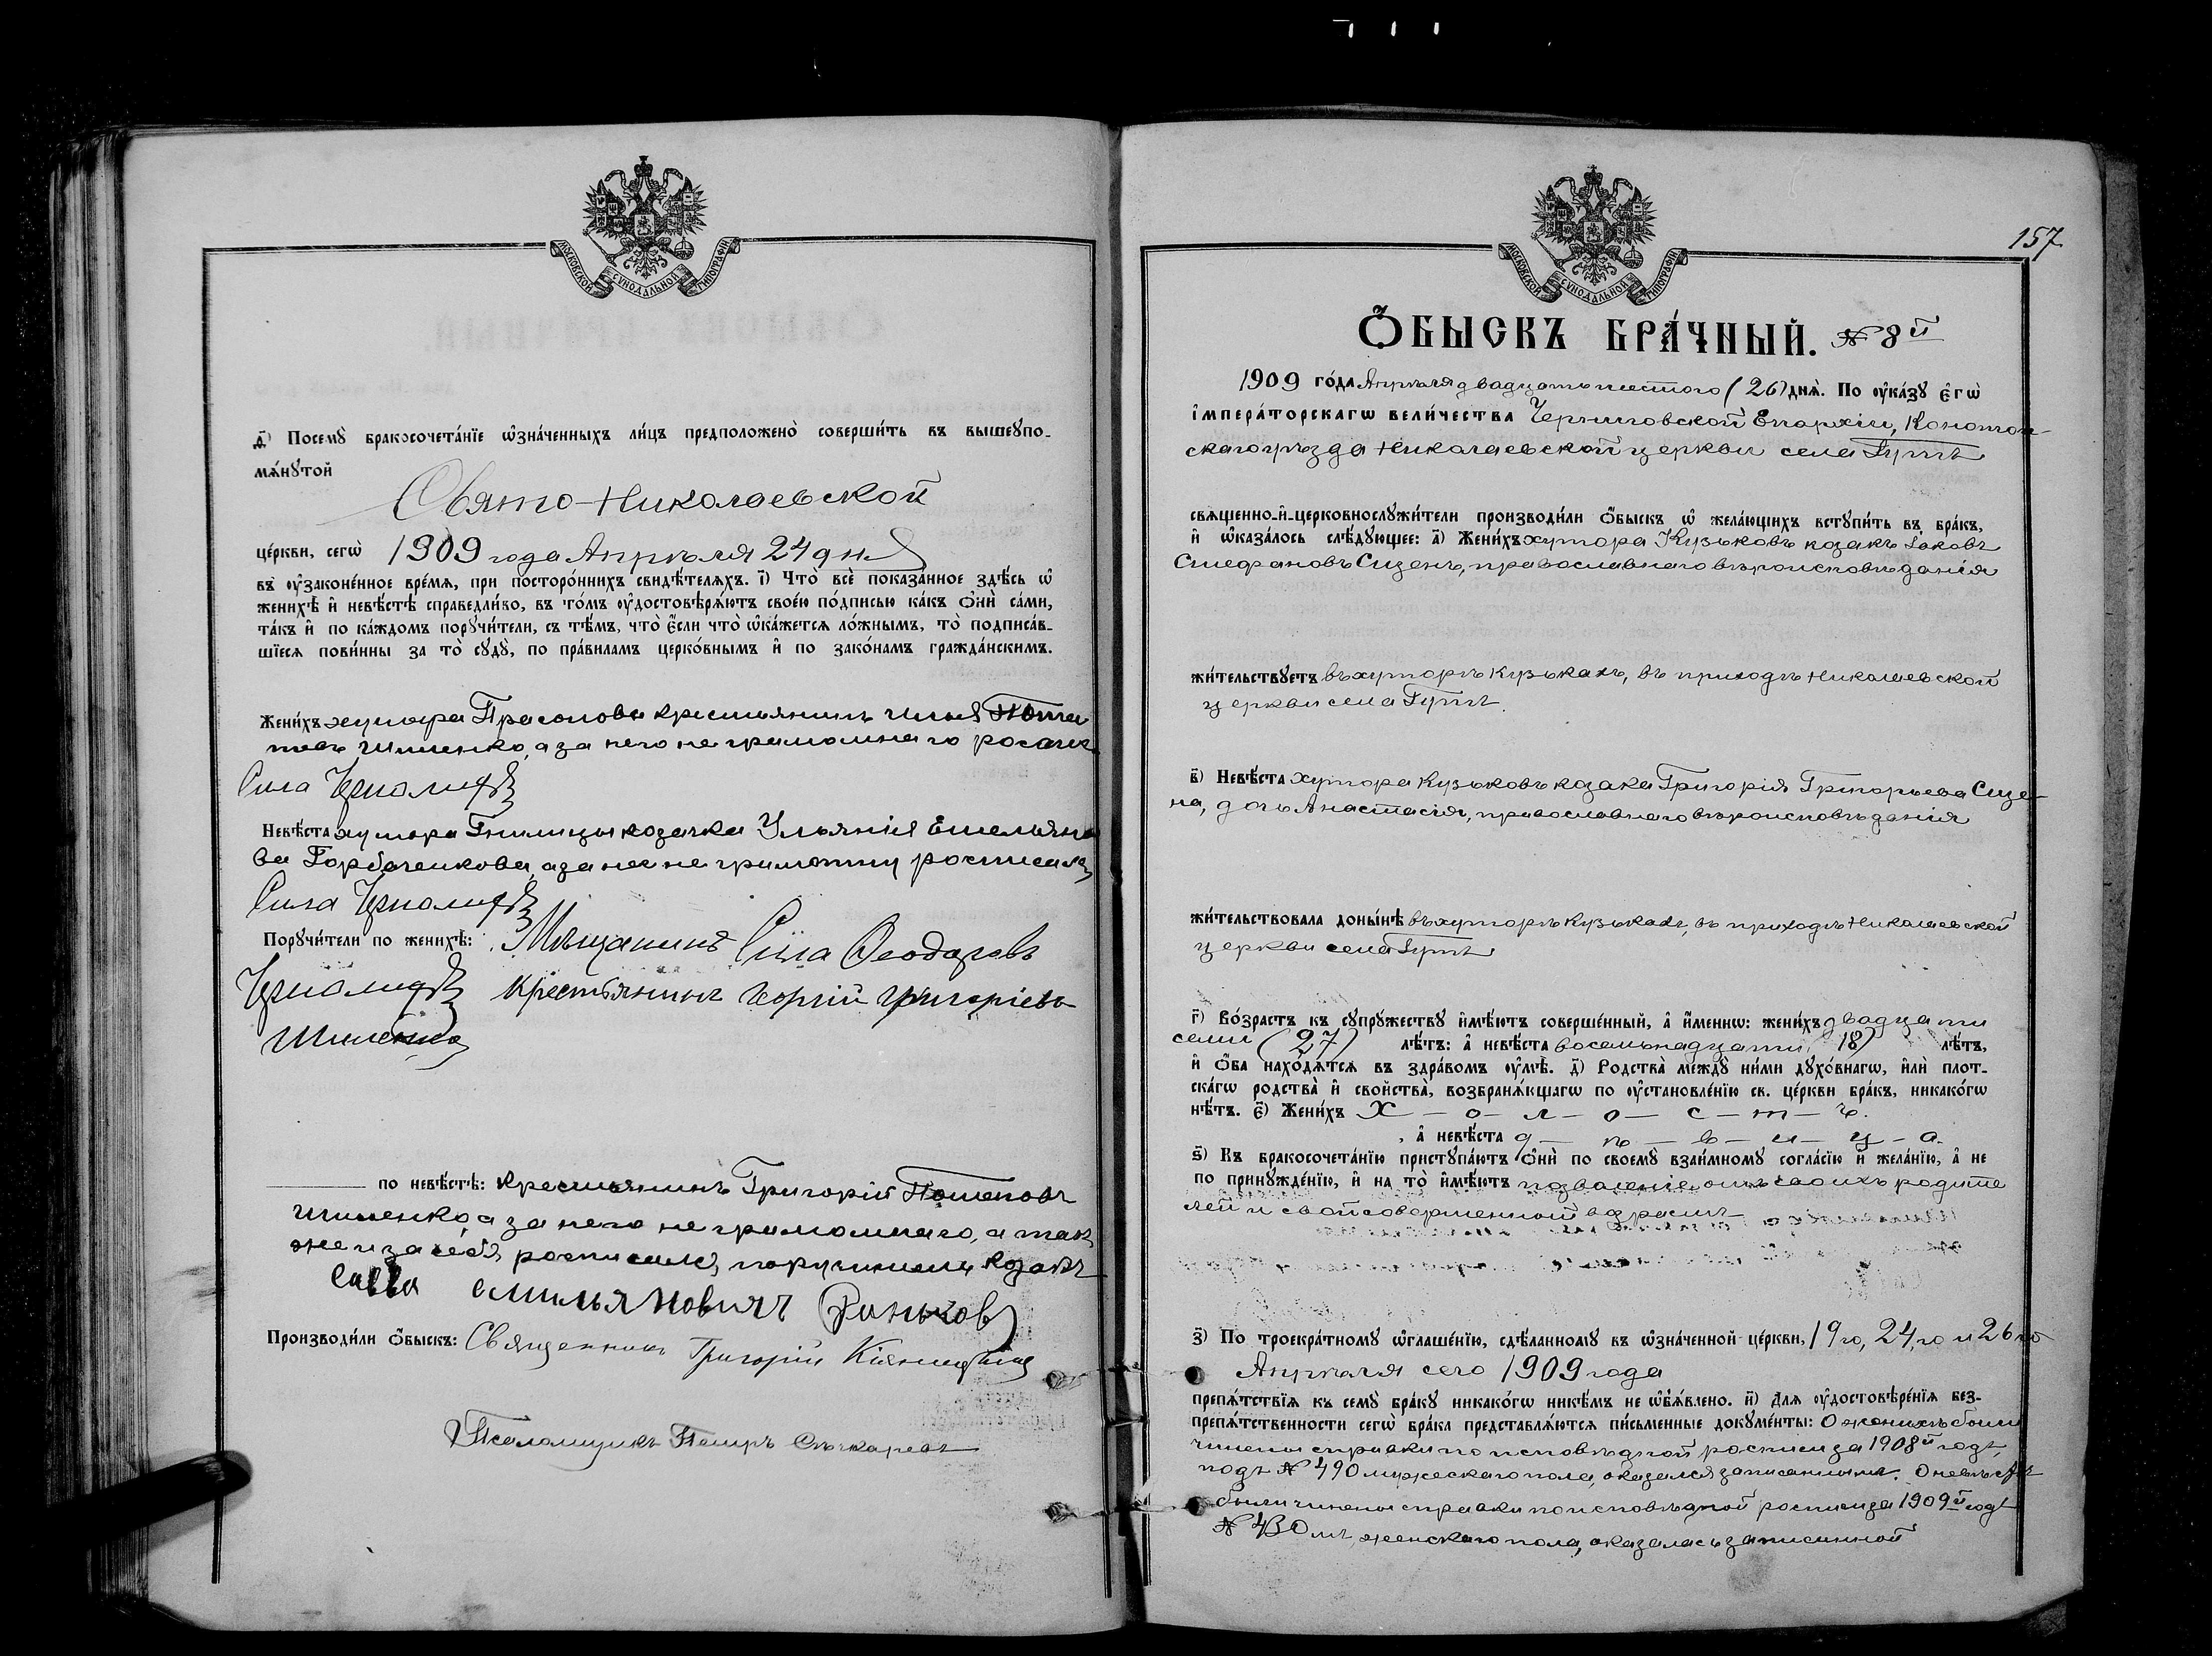 МОСКОВСКОЙ СѴНОДАЛЬНОЙ ТИПОГРАФІИ
Посемꙋ̀ бракосочета́нїе ѡ҆зна́ченныхъ ли́цъ предположено̀ соверши́ть въ вышеꙋпо-
мѧ́нꙋтой
Свято-Николаевской
це́ркви, сегѡ̀ 1909 года Апрѣля 24 дня
въ ᲂу҆законе́нное вре́мѧ, при посторо́ннихъ свидѣ́телѧхъ. і҃) Что̀ всѐ показа́нное здѣ́сь ѡ҆
женихѣ̀ и҆ невѣ́стѣ справедли́во, въ то́мъ ᲂу҆достовѣрѧ́ютъ свое́ю по́дписью ка́къ ѻ҆нѝ са́ми,
та́къ и҆ по ка́ждомъ порꙋчи́тели, съ тѣ́мъ, что̀ є҆́сли что̀ ѡ҆ка́жетсѧ ло́жнымъ, то̀ подписа́в-
шїесѧ пови́нны за то̀ сꙋдꙋ̀, по пра́виламъ церко́внымъ и҆ по зако́намъ гражда́нскимъ.
Жени́хъ хутора Прасолова крестьянинъ Илья Пота
повъ Шиленко, а за него не грамотнаго росписа
Сила
Невѣ́ста хутора Гнилицы козачка Ульянія Емельяно
ва Горбаченкова, а за нее не грамотну росписался
Сила
Порꙋчи́тели по женихѣ̀: Мѣщанинъ Сила Ѳеодоровъ
Крестьянинъ Георгій Григоріевъ
Шиленко
по невѣ́стѣ: Крестьянинъ Григорій Потаповъ
Шиленко, а за него не грамотнаго, а так
же и за себя росписался поручитель козакъ
Савва Емильяновичъ
Производи́ли ѻ҆́быскъ: Священникъ Григорій
Псаломщикъ Петръ
МОСКОВСКОЙ СѴНОДАЛЬНОЙ ТИПОГРАФІИ
157
Ѻ҆БЫСКЪ БРА́ЧНЫЙ. № 8й
1909 го́да Апрѣля двадцать шестого (26) днѧ̀. По ᲂу҆ка́зꙋ є҆гѡ̀
і҆мпера́торскагѡ вели́чества Черниговской Епархіи, Конотоп-
скаго уѣзда Николаевской церкви села Гутъ
свѧщенно-и҆-церковнослꙋжи́тели производи́ли ѻ҆́быскъ ѡ҆ жела́ющихъ встꙋпи́ть въ бра́къ,
и҆ ѡ҆каза́лось слѣ́дꙋющее: а҃) Жени́хъ хутора Кузьковъ козакъ Іаковъ
Стефановъ Сизенъ, православнаго вѣроисповѣданія
жи́тельствꙋетъ въ хуторѣ Кузькахъ, въ приходѣ Николаевской
церкви села Гутъ.
в҃) Невѣ́ста хутора Кузьковъ козака Григорія Григорьева Сизе-
на, дочь Анастасія, православнаго вѣроисповѣданія
жи́тельствовала доны́нѣ въ хуторѣ Кузькахъ, въ приходѣ Николаевской
церкви села Гутъ
г҃) Во́зрастъ къ сꙋпрꙋ́жествꙋ и҆мѣ́ютъ соверше́нный, а҆ и҆́меннѡ: жени́хъ двадцати
семи (27) лѣ́тъ: а҆ невѣ́ста восемьнадцати (18) лѣ́тъ,
и҆ ѻ҆́ба нахо́дѧтсѧ въ здра́вомъ ᲂу҆мѣ̀. д҃) Родства̀ междꙋ̀ ни́ми дꙋхо́внагѡ, и҆лѝ плот-
ска́гѡ родства̀ и҆ свойства̀, возбранѧ́ющагѡ по ᲂу҆становле́нїю св. це́ркви бра́къ, никако́гѡ
нѣ́тъ. є҃) Жени́хъ Х - о - л - о - с - т - ъ.
, а҆ невѣ́ста д - ѣ - в - и - ц - а.
ѕ҃) Къ бракосочета́нїю пристꙋпа́ютъ ѻ҆нѝ по своемꙋ̀ взаи́мномꙋ согла́сїю и҆ жела́нїю, а҆ не
по принꙋжде́нїю, и҆ на то̀ и҆мѣ́ютъ позволеніе отъ своихъ родите
лей и свой совершенной возрастъ
з҃) По троекра́тномꙋ ѡ҆глаше́нїю, сдѣ́ланномꙋ въ ѡ҆зна́ченной це́ркви, 19го, 24,го и 26го
Апрѣля сего 1909 года
препѧ́тствїѧ къ семꙋ̀ бра́кꙋ никако́гѡ никѣ́мъ не ѡ҆б̾ѧ́влено. и҃) Длѧ ᲂу҆достовѣре́нїѧ без-
препѧ́тственности сегѡ̀ бра́ка представлѧ́ютсѧ пи́сьменные докꙋме́нты: О женихѣ были
чинены справки по исповѣдной росписи за 1908й годъ,
подъ № 490 мужескаго пола, оказался записаннымъ. О невѣстѣ
были чинены справки по исповѣдной росписи за 1909й годъ
№ 430мъ, женскаго пола, оказалась записанной